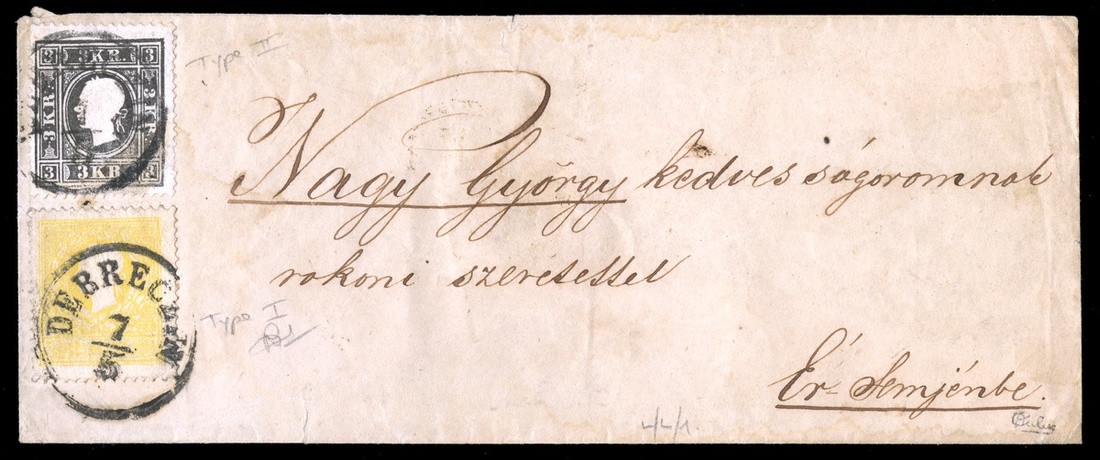 3 3 KR. 3
3 KR.
3 KR.
3 3 KR.
Type II
Nagy György kedves ságoromnak
rokoni szeretettel
DEBRECZIN
7/5
Type I
Ér-Semjénbe.